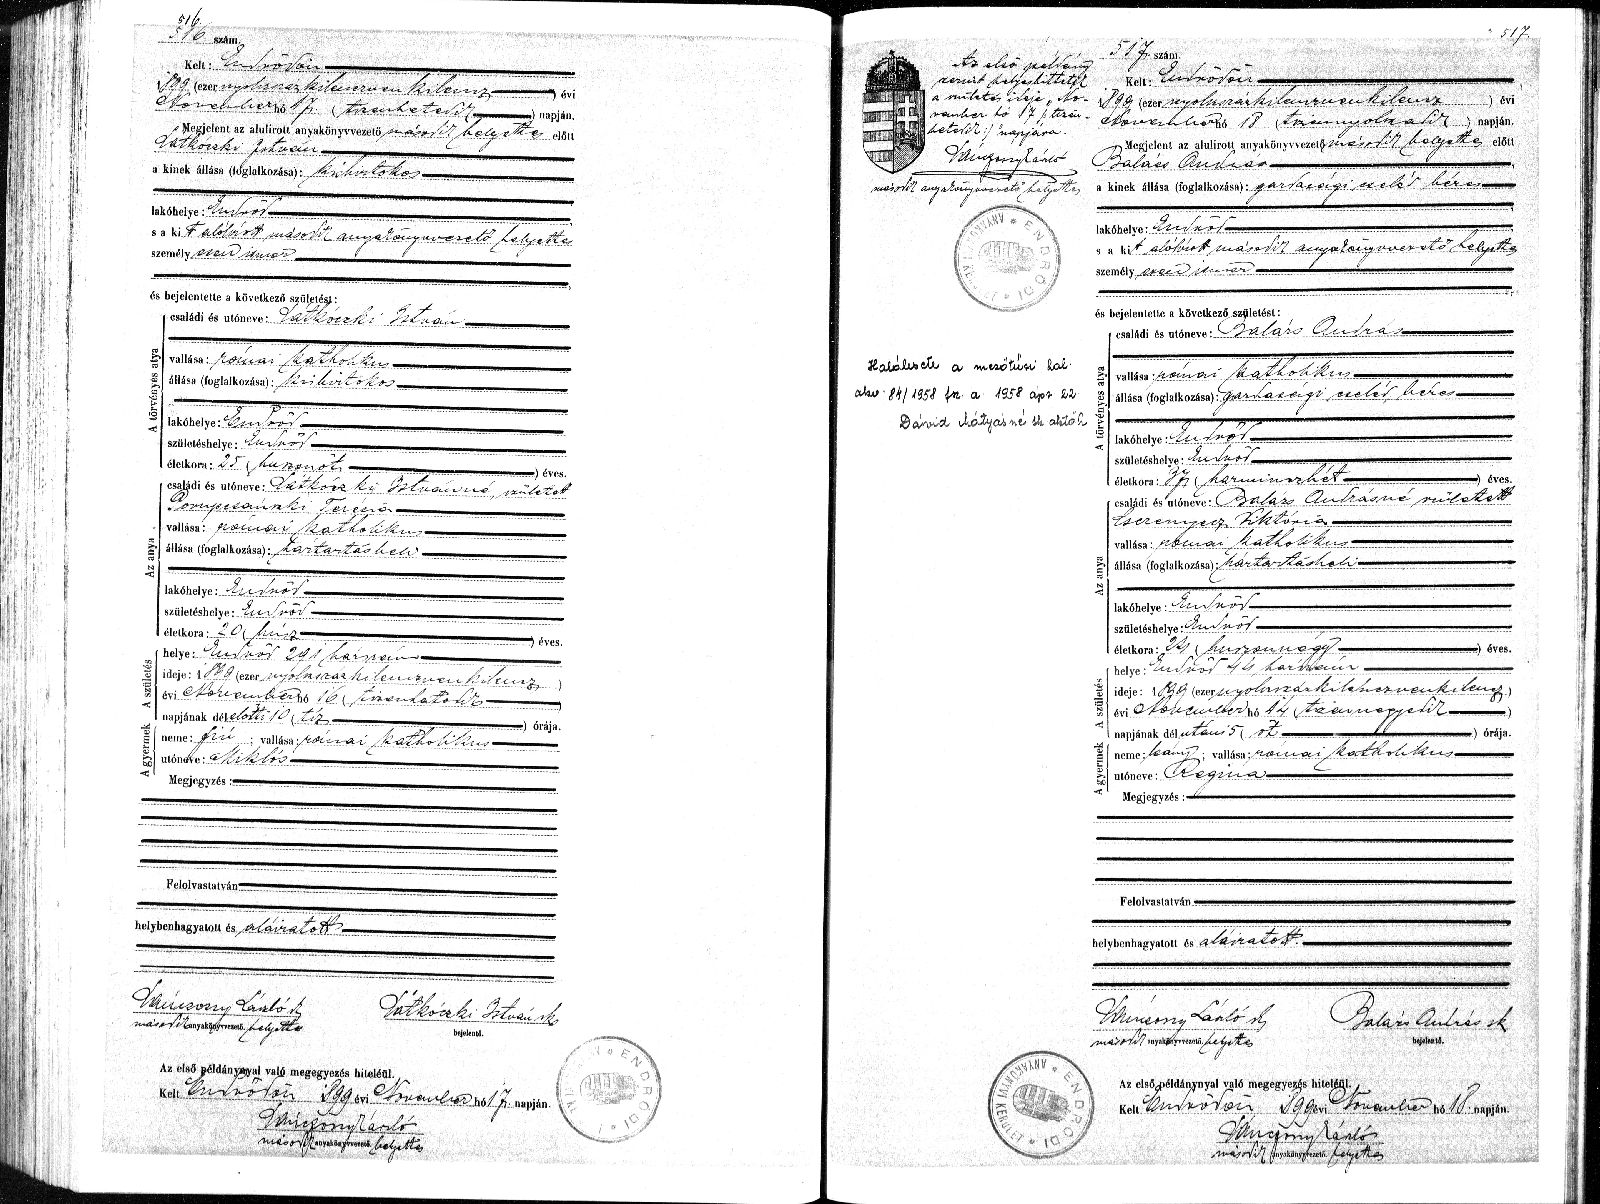 516.
516 szám.
Kelt: Endrődön
1899 (ezer nyolcszázkilenczvenkilencz) évi
November hó 17 (tizenhetedik) napján.
Megjelent az alulirott anyakönyvvezető második helyettes előtt
István
a kinek állása (foglalkozása): kisbirtokos
lakóhelye: Endrőd
s a kit alólírott második anyakönyvvezető helyettes
személyesen ismer
és bejelentette a következő születést:
A törvényes atya
családi és utóneve: István
vallása: római katholikus
állása (foglalkozása): kisbirtokos
lakóhelye: Endrőd
születéshelye: Endrőd
életkora: 25 (huszonöt) éves.
Az anya
családi és utóneve: Istvánné, született
Terézia
vallása: római katholikus
állása (foglalkozása): háztartásbeli
lakóhelye: Endrőd
születéshelye: Endrőd
életkora: 20 (húsz) éves.
A születés
helye: Endrőd 291 házszám
ideje: 1899 (ezer nyolcszázkilenczvenkilencz)
évi November hó 16 (tizenhatodik)
napjának délelőtti 10 (tíz) órája.
A gyermek
neme: fiú; vallása: római katholikus
utóneve: Miklós
Megjegyzés:
Felolvastatván
helybenhagyatott és aláiratott
László sk István sk
második anyakönyvvezető helyettes bejelentő.
Az első példánynyal való megegyezés hiteléül.
Kelt Endrődön 1899 évi November hó 17. napján.
László
második anyakönyvvezető helyettes
ENDRŐDI
517.
Az első példány
szerint helyesbíttetett
a születés ideje „No-
vember hó 17 (tizen-
hetedik)" napjára.
László
második anyakönyvvezető helyettes
ENDRŐDI
Halálesete a mezőtúri hal.
akv. 84/1958 fsz. a 1958 ápr 22
Dávid Mátyásné sk aktóh
517 szám
Kelt: Endrődön
1899 (ezer nyolcszázkilenczvenkilencz) évi
November hó 18 (tizennyolcadik) napján.
Megjelent az alulirott anyakönyvvezető második helyettes előtt
Balázs András
a kinek állása (foglalkozása): gazdasági cseléd béres
lakóhelye: Endrőd
s a kit alólírott második anyakönyvvezető helyettes
személyesen ismer
és bejelentette a következő születést:
A törvényes atya
családi és utóneve: Balázs András
vallása: római katholikus
állása (foglalkozása): gazdasági cseléd béres
lakóhelye: Endrőd
születéshelye: Endrőd
életkora: 37 (harminczhét) éves.
Az anya
családi és utóneve: Balázs Andrásné született
Viktória
vallása: római katholikus
állása (foglalkozása): háztartásbeli
lakóhelye: Endrőd
születéshelye: Endrőd
életkora: 24 (huszonnégy) éves.
A születés
helye: Endrőd házszám
ideje: 1899 (ezer nyolcszázkilenczvenkilencz)
évi November hó 14 (tizennegyedik)
napjának délutáni 5 (öt) órája.
A gyermek
neme: leány; vallása: római katholikus
utóneve: Regina
Megjegyzés:
Felolvastatván
helybenhagyatott és aláiratott.
László sk Balázs András sk
második anyakönyvvezető helyettes bejelentő.
Az első példánynyal való megegyezés hiteléül.
Kelt Endrődön 1899 évi November hó 18. napján.
László
második anyakönyvvezető helyettes
ENDRŐDI ANYAKÖNYVI KERÜLET